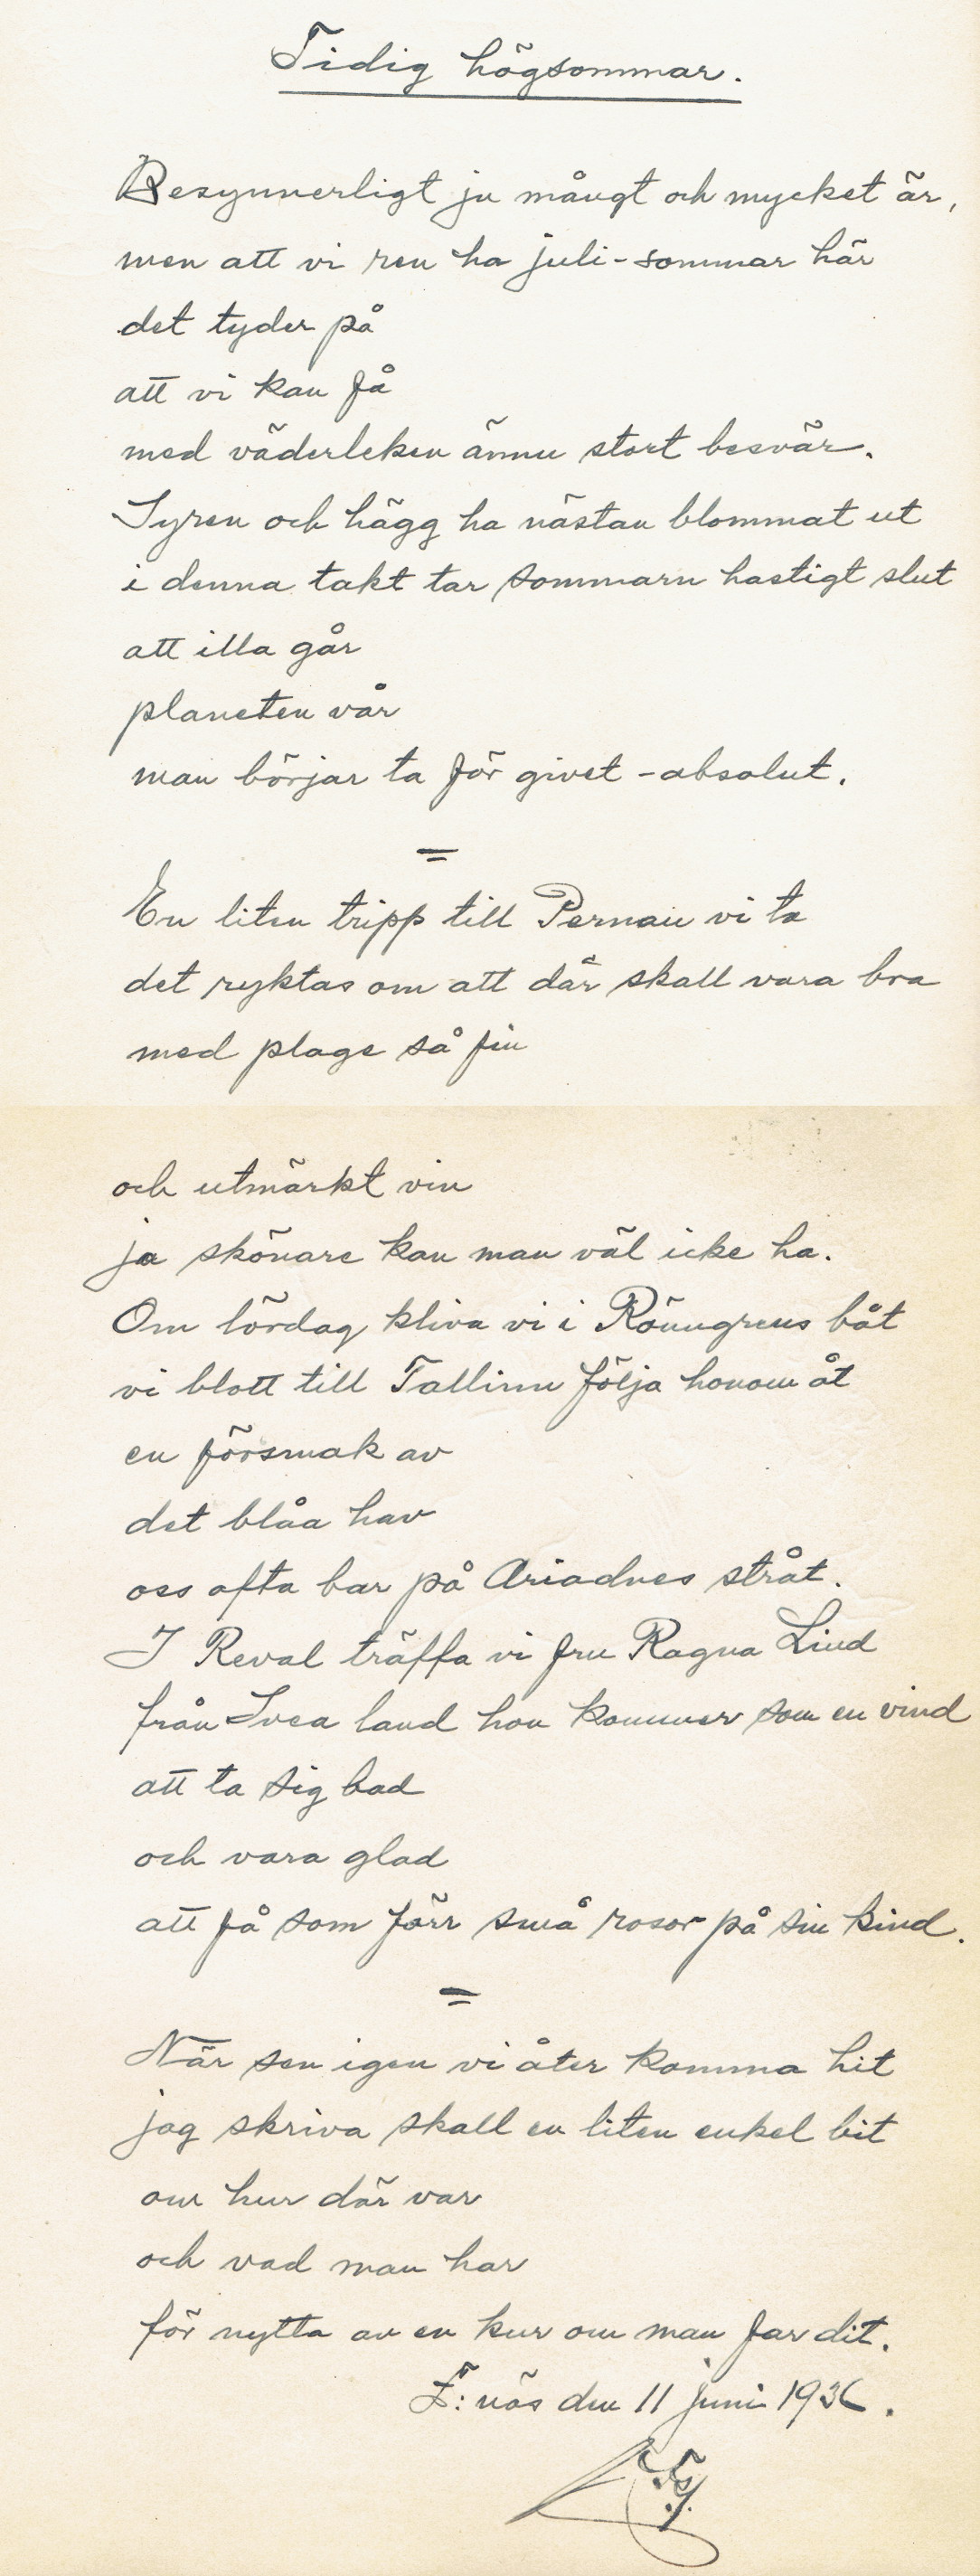 Tidig högsommar.
Besynnerligt ju mångt och mycket är,
men att vi ren ha juli-sommar här
det tyder på
att vi kan få
med väderleken ännu stort besvär.
Syren och hägg ha nästan blommat ut
i denna takt tar sommarn hastigt slut
att illa går
planeten vår
man börjar ta för givet - absolut.
=
En liten tripp till Pernau vi ta
det ryktas om att där skall vara bra
med plage så fin
och utmärkt vin
ja skönare kan man väl icke ha.
Om lördag kliva vi i Rönngrens båt
vi blott till Tallinn följa honom åt
en försmak av
det blåa hav
oss ofta bar på Ariadnes stråt.
I Reval träffa vi fru Ragna Lind
från Svea land hon kommer som en vind
att ta sig bad
och vara glad
att få som förr små rosor på sin kind.
=
När sen igen vi åter komma hit
jag skriva skall en liten enkel bit
om hur där var
och vad man har
för nytta av en kur om man far dit.
:näs den 11 juni 1936.